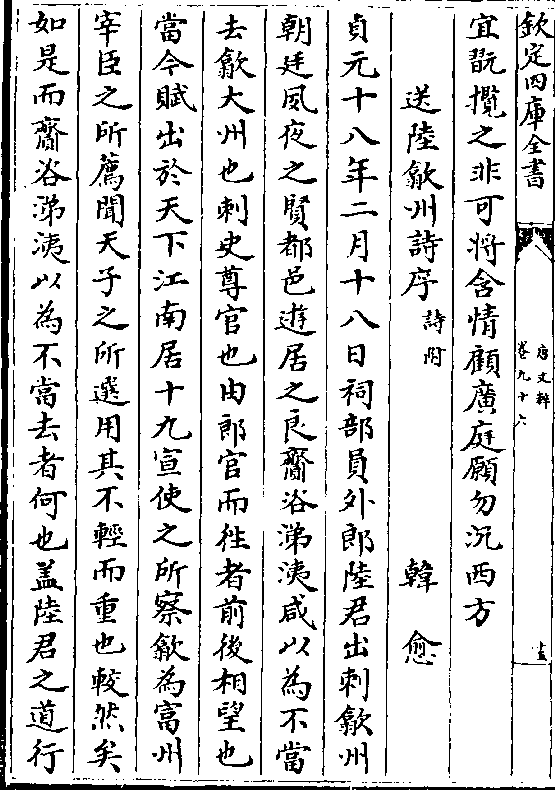 欽定四庫全書
唐文粹
卷九十六
宜翫攬之非可將含情顧廣庭願勿沉西方
送陸歙州詩序 詩附 韓愈
貞元十八年二月十八日祠部員外郎陸君出刺歙州
朝廷夙夜之賢都邑遊居之良齎咨涕洟咸以為不當
去歙大州也刺史尊官也由郎官而徃者前後相望也
當今賦出於天下江南居十九宣使之所察歙為富州
宰臣之所薦聞天子之所選用其不輕而重也較然矣
如是而齎咨涕洟以為不當去者何也盖陸君之道行